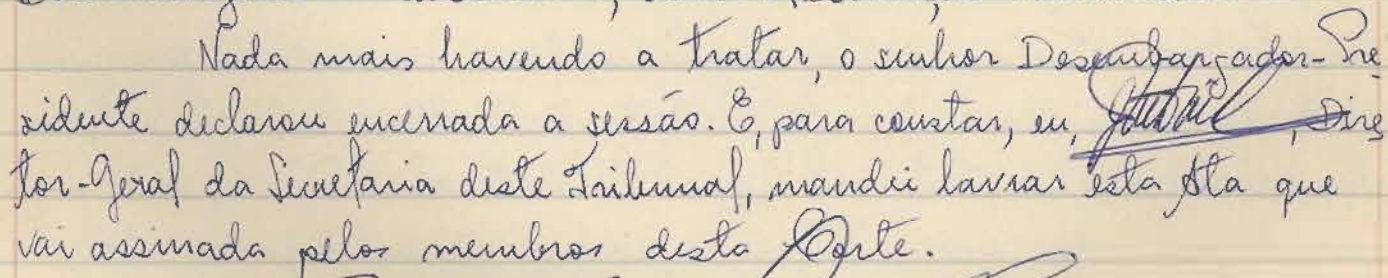 Nada mais havendo a tratar, o senhor Desembargador-Pre
sidente declarou encerrada a sessão. E, para constar, eu, , Dire
tor-Geral da Secretaria deste Tribunal, mandei lavrar esta Ata que
vai assinada pelos membros desta Corte.